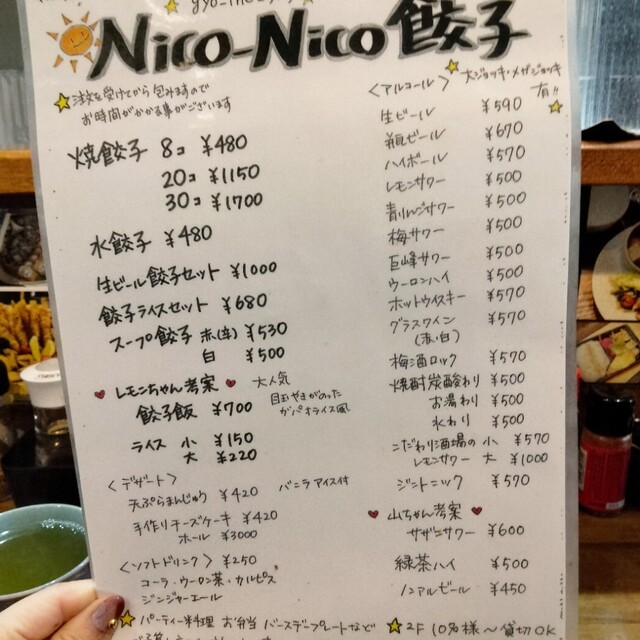 Nico-Nico 餃子
注文を受けてから包みますので
お時間がかかる事がございます
焼餃子 8コ ¥480
20コ ¥1150
30コ ¥1700
水餃子 ¥480
生ビール餃子セット ¥1000
餃子ライスセット ¥680
スープ餃子 赤(辛) ¥530
白 ¥500
レモンちゃん考案 大人気
餃子飯 ¥700
目玉やきがのった
ガパオライス風
ライス 小 ¥150
大 ¥220
<デザート>
天ぷらまんじゅう ¥420 バニラアイス付
手作りチーズケーキ ¥420
ホール ¥3000
<ソフトドリンク> ¥250
コーラ・ウーロン茶・カルピス
ジンジャーエール
パーティー料理 お弁当 バースデープレートなど
<アルコール>
大ジョッキ・メガジョッキ
有!!
生ビール ¥590
瓶ビール ¥670
ハイボール ¥570
レモンサワー ¥500
青りんごサワー ¥500
梅サワー ¥500
巨峰サワー ¥500
ウーロンハイ ¥500
ホットウイスキー ¥570
グラスワイン ¥570
(赤・白)
梅酒ロック ¥570
焼酎炭酸わり ¥500
お湯わり ¥500
水わり ¥500
こだわり酒場の 小 ¥570
レモンサワー 大 ¥1000
ジントニック ¥570
山ちゃん考案
サザンサワー ¥600
緑茶ハイ ¥500
ノンアルビール ¥450
2F 10名様〜貸切OK